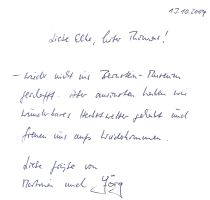 13.10.2004
Liebe Elke, lieber Thomas!
– wieder nicht ins Museum
geschafft. aber ansonsten haben wir
wunderbares Herbstwetter gehabt und
freuen uns aufs Wiederkommen.
Liebe Grüße von
und Jörg